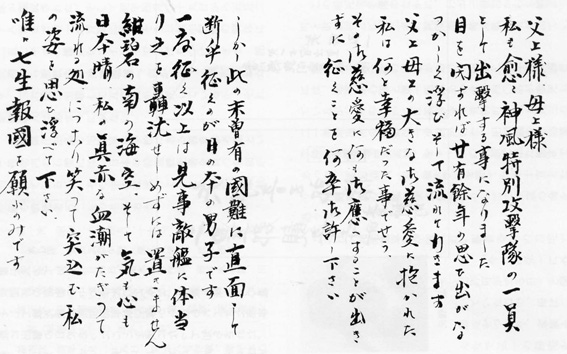 父上様母上様
私も愈々神風特別攻撃隊の一員
として出撃する事になりました
目を閉ずれば廿有餘年の思ひ出がな
つかしく浮びそして流れて行きます
父上母上の大きな御慈愛に抱かれた
私は何と幸福だった事でせう
その御慈愛に何も御應へすることが出来
ずに征くことを何卒御許し下さい
しかし此の未曽有の國難に直面して
断乎征くのが日本の男子です
一度征く以上は見事敵艦に体当
り之を轟沈せしめずには置きません
紺碧の南の海、空、そして気心も
日本晴、私の眞赤な血潮がたぎって
流れる処、につこり笑って突込む私
の姿を思ひ浮べて下さい
唯々七生報國を願ふのみです